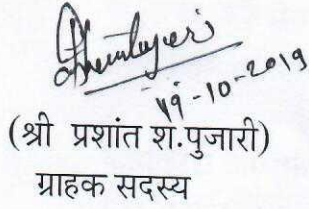 19-10-2019
(श्री प्रशांत श.पुजारी)
ग्राहक सदस्य